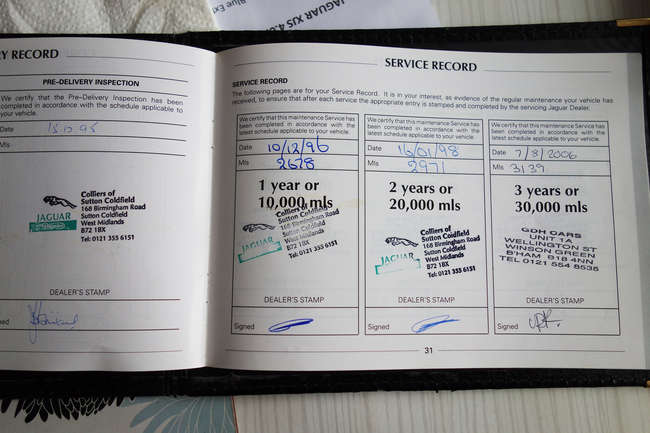 JAGUAR XJS 4.0
Blue Ex
RY RECORD
PRE-DELIVERY INSPECTION
We certify that the Pre-Delivery Inspection has been
completed in accordance with the schedule applicable to
your vehicle.
Date 15.12.95
Mls
Colliers of
Sutton Coldfield
168 Birmingham Road
Sutton Coldfield
West Midlands
B72 1BX
Tel: 0121 355 6151
JAGUAR
DEALER'S STAMP
ned
SERVICE RECORD
SERVICE RECORD
The following pages are for your Service Record. It is in your interest, as evidence of the regular maintenance your vehicle has
received, to ensure that after each service the appropriate entry is stamped and completed by the servicing Jaguar Dealer.
We certify that this maintenance Service has
been completed in accordance with the
latest schedule applicable to your vehicle.
Date 10/12/96
Mls 2628
1 year or
10,000 mls
Colliers of
Sutton Coldfield
168 Birmingham Road
Sutton Coldfield
West Midlands
B72 1BX
Tel: 0121 355 6151
JAGUAR
DEALER'S STAMP
Signed
We certify that this maintenance Service has
been completed in accordance with the
latest schedule applicable to your vehicle.
Date 16/01/98
Mls 2971
2 years or
20,000 mls
Colliers of
Sutton Coldfield
168 Birmingham Road
Sutton Coldfield
West Midlands
B72 1BX
Tel: 0121 355 6151
JAGUAR
DEALER'S STAMP
Signed
We certify that this maintenance Service has
been completed in accordance with the
latest schedule applicable to your vehicle.
Date 7/8/2006
Mls 3139
3 years or
30,000 mls
GDH CARS
UNIT 1A
WELLINGTON ST
WINSON GREEN
B'HAM B18 4NN
TEL 0121 554 8535
DEALER'S STAMP
Signed
31